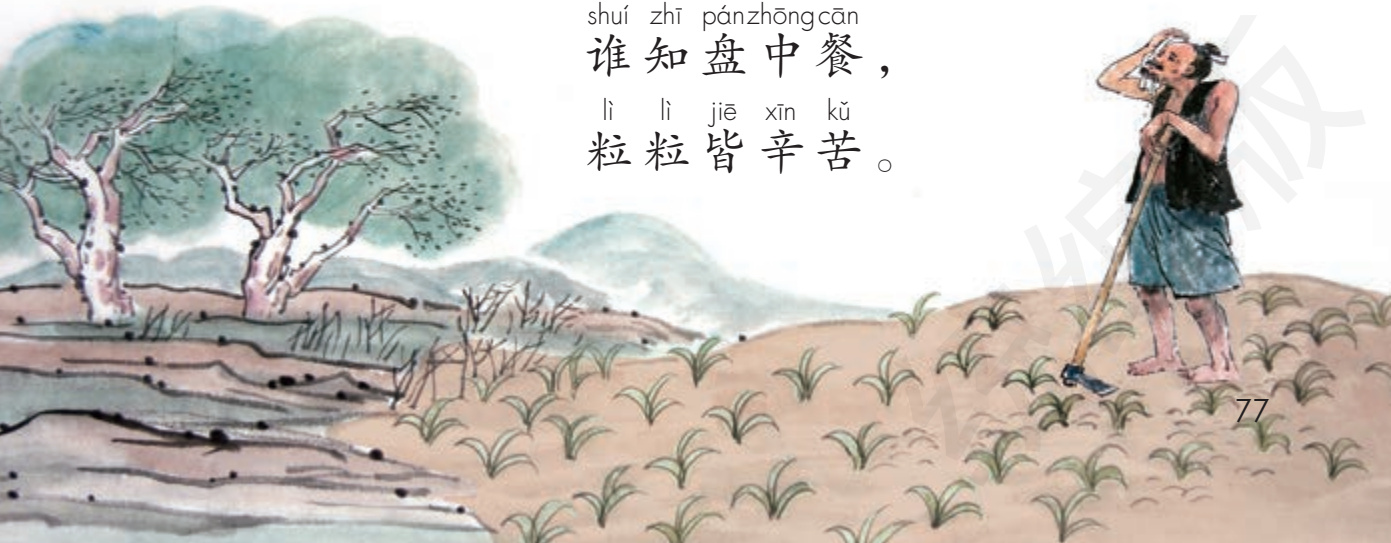 shuí zhī pán zhōng cān
谁知盘中餐，
lì lì jiē xīn kǔ
粒粒皆辛苦。
77
统编版